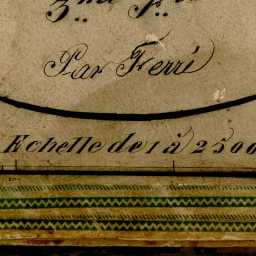 Par Ferri
Echelle de 1 à 2500